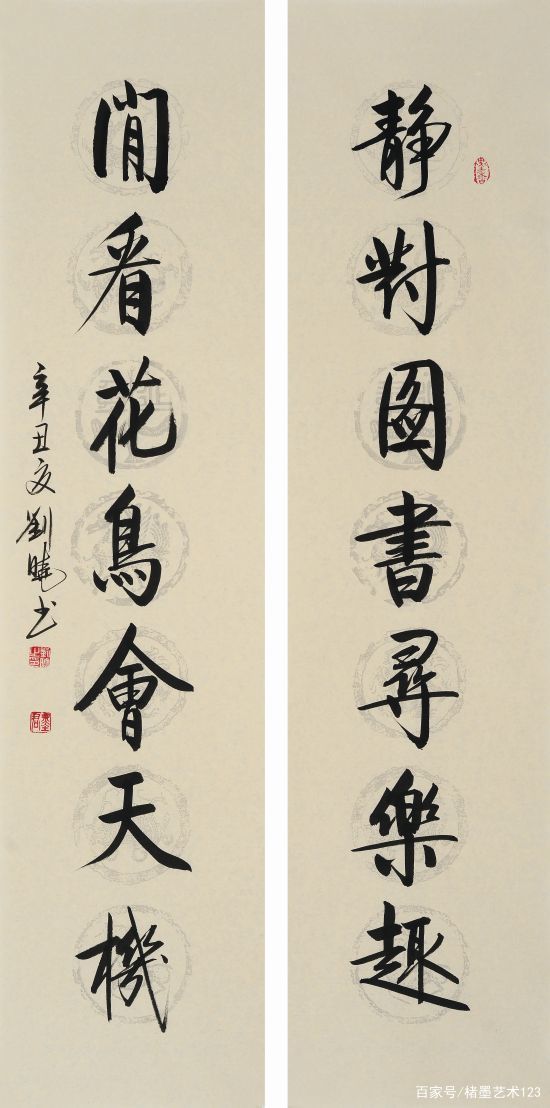 静對圖書尋樂趣
閒看花鳥會天機
辛丑夏劉曉书
百家号/楮墨艺术123